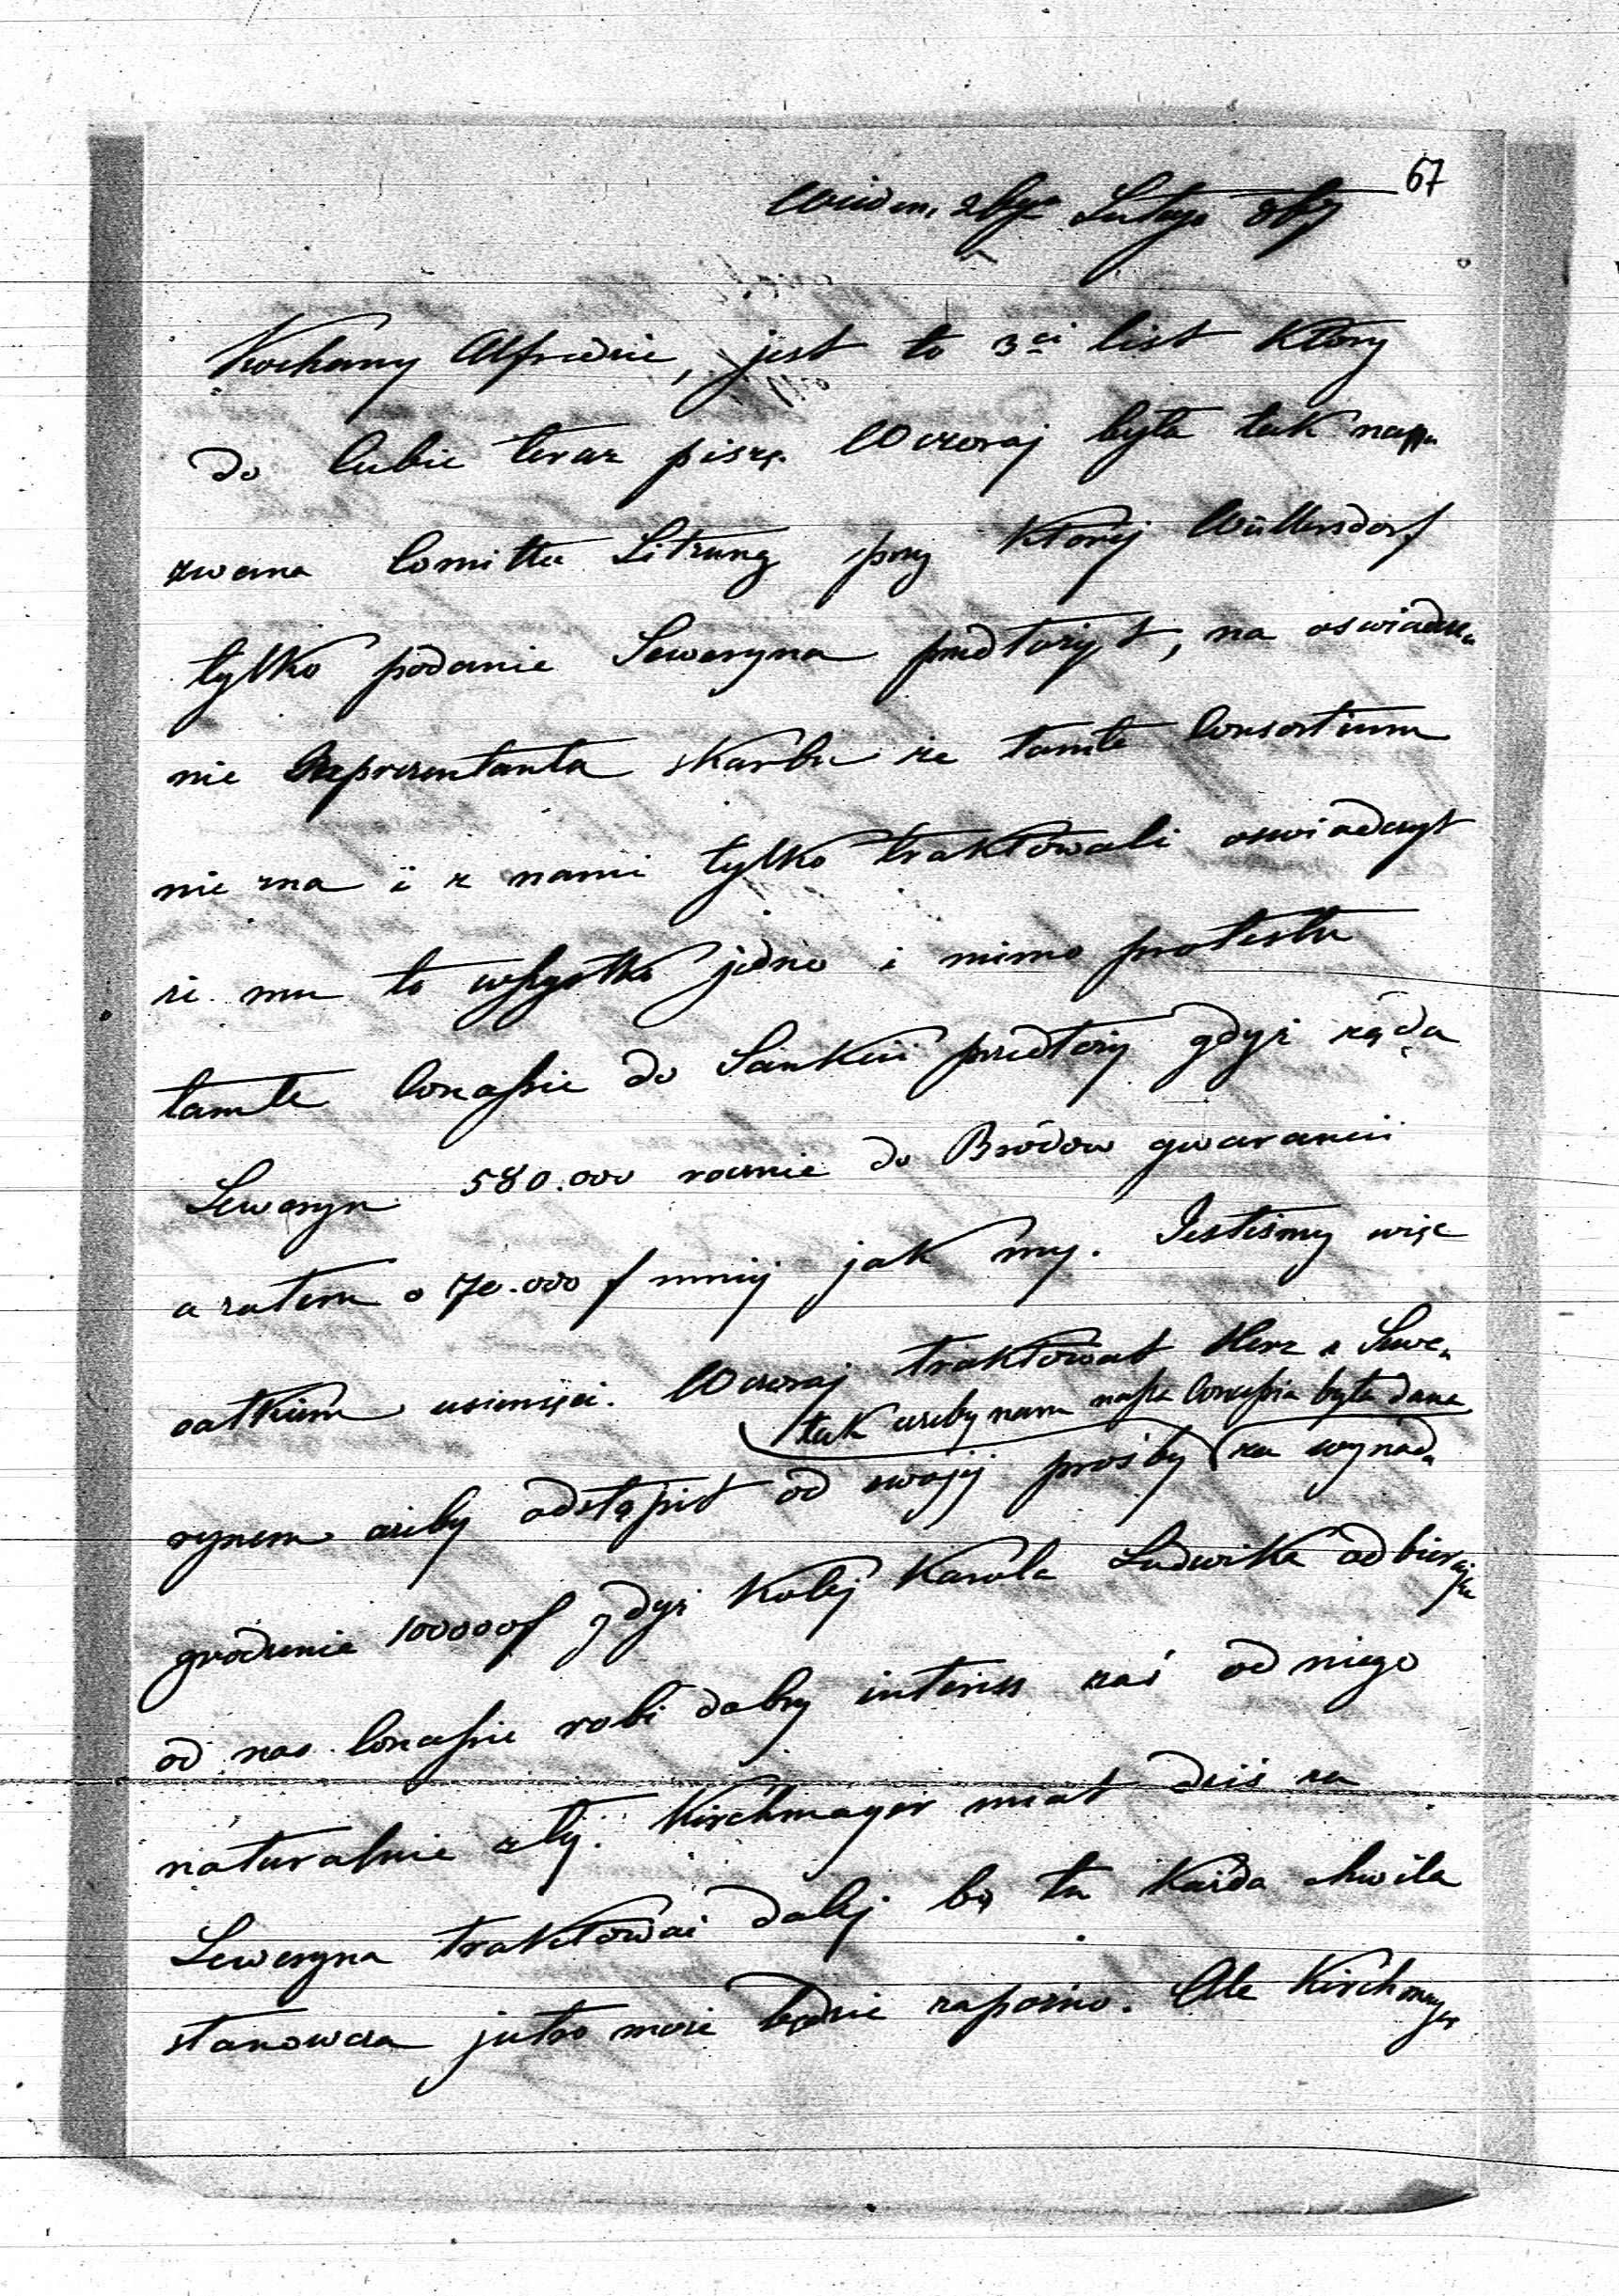 67
Wiedeń 26go Lutego 867
Kochany Alfredzie, jest to 3ci list który
do Ciebie teraz piszę. Wczoraj była tak nazy
zwana Comittee Sitzung przy której Wüllersdorf
tylko podanie Seweryna przedłożył, na oswiadcze
nie Reprezentanta skarbu że tamte Consortium
nie zna i z nami tylko traktowali oswiadczył
że mu to wszystko jedno i mimo protestu
tamte Concessie do Sankcii przedłoży gdyż rząda
Seweryn 580.000 rocznie do Brodów gwarancii
a zatem o 70.000 f mniej jak my. Jesteśmy więc
całkiem usunięci. Wczoraj traktował Herz z Sewe
tak ażeby nam nasza Concessia była dana
rynem ażeby odstąpił od swojej prośby za wynad
grodzenie 100000f gdyż Kolej Karola Ludwika odbierając
od nas Concessie robi dobry interess zaś od niego
naturalnie zły. Kirchmayer miał dziś za
Seweryna traktować dalej bo tu każda chwila
stanowcza jutro może będzie zapóźno. Ale Kirchmayer